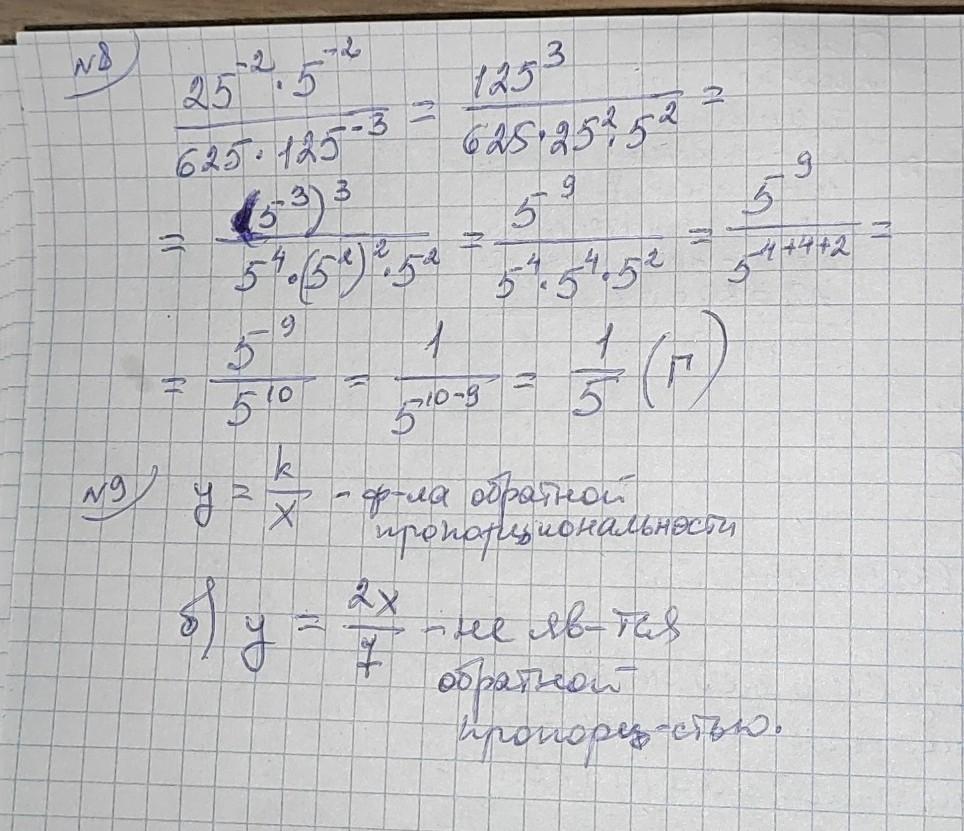 №8) 25⁻²·5⁻² / 625·125⁻³ = 125³ / 625·25²·5² =
= (5³)³ / 5⁴·(5²)²·5² = 5⁹ / 5⁴·5⁴·5² = 5⁹ / 5⁴⁺⁴⁺² =
= 5⁹ / 5¹⁰ = 1 / 5¹⁰⁻⁹ = 1 / 5 (Г)
№9) y = k / x - ф-ла обратной
пропорциональности
б) y = 2x / 7 - не яв-тся
обратной
пропорц-стью.